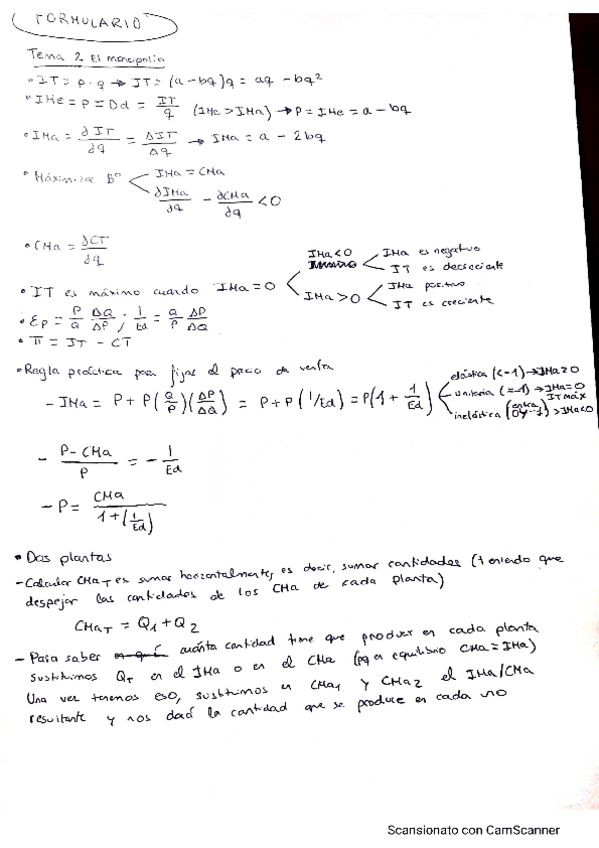 FORMULARIO
Tema 2. El monopolio
• IT = p · q → IT = (a - bq)q = aq - bq²
• IMe = P = Dd = IT/q (IMe > IMa) → P = IMe = a - bq
• IMa = ∂IT/∂q = ΔIT/Δq → IMa = a - 2bq
• Máximizar Bº < IMa = CMa
∂IMa/∂q - ∂CMa/∂q < 0
• CMa = ∂CT/∂q
• IT es máximo cuando IMa = 0 < IMa < 0 < IMa es negativo
IT es decreciente
IMa > 0 < IMa positivo
IT es creciente
• Ep = P/Q ΔQ/ΔP ; 1/Ed = Q/P ΔP/ΔQ
• π = IT - CT
• Regla práctica para fijar el precio de venta
- IMa = P + P(Q/P)(ΔP/ΔQ) = P + P(1/Ed) = P(1 + 1/Ed)
elástica (<-1) → IMa > 0
unitaria (=-1) → IMa = 0 IT máx
inelástica (entre 0 y -1) > IMa < 0
- P - CMa/P = - 1/Ed
- P = CMa/1 + (1/Ed)
• Dos plantas
- Calcular CMaT es sumar horizontalmente, es decir, sumar cantidades (teniendo que
despejar las cantidades de los CMa de cada planta)
CMaT = Q1 + Q2
- Para saber cuánta cantidad tiene que producir en cada planta
sustituimos QT en el IMa o en el CMa (pq en equilibrio CMa = IMa)
Una vez tenemos eso, sustituimos en CMa1 y CMa2 el IMa/CMa
resultante y nos dará la cantidad que se produce en cada uno
Scansionato con CamScanner